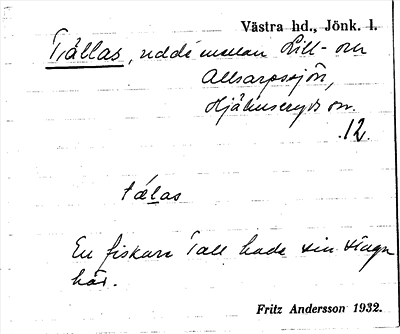 Västra hd., Jönk. l.
Tällas, udde mellan Lill- och
Allsarpssjön,
Hjälmseryds sn.
12.
tǽlas
En fiskare Tall hade sin stuga
här.
Fritz Andersson 1932.